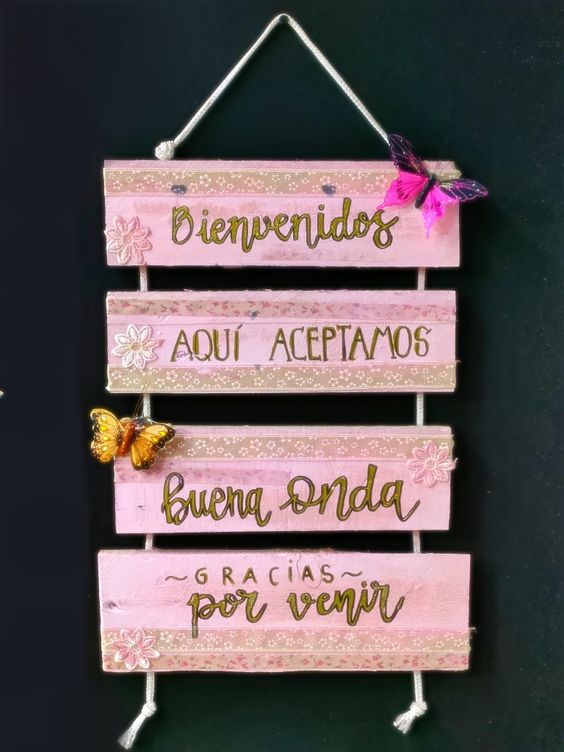 Bienvenidos
AQUÍ ACEPTAMOS
Buena onda
~GRACIAS~
por venir